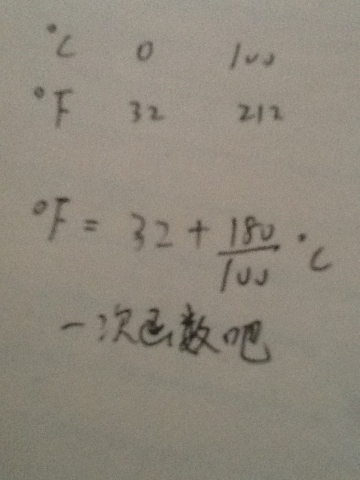 °C 0 100
°F 32 212
°F = 32 + 180/100 °C
一次函数吧